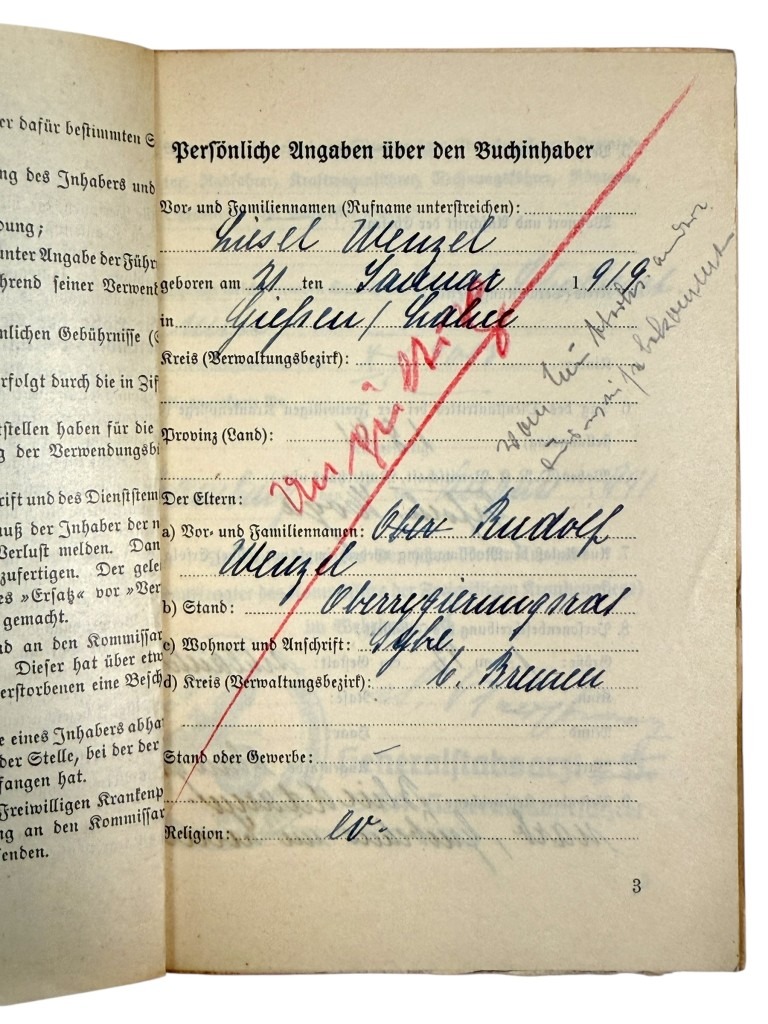 er dafür bestimmten S
ng des Inhabers und
dung;
unter Angabe der Führ
hrend seiner Verwend
nlichen Gebührnisse (
erfolgt durch die in Zif
tstellen haben für die
g der Verwendungsbi
rift und des Dienststem
muß der Inhaber der n
Verlust melden. Dan
zufertigen. Der gele
es »Ersatz« vor »Ver
gemacht.
nd an den Kommissar
Dieser hat über etw
erstorbenen eine Besch
e eines Inhabers abha
der Stelle, bei der der
fangen hat.
Freiwilligen Krankenp
ng an den Kommissar
senden.
Persönliche Angaben über den Buchinhaber
Vor- und Familiennamen (Rufname unterstreichen):
Liesel Wenzel
geboren am 21 ten Januar 1 919
in Gießen / Lahn
Kreis (Verwaltungsbezirk):
Provinz (Land):
Ungültig
Der Eltern:
a) Vor- und Familiennamen: Rudolf
Wenzel
b) Stand: Oberregierungsrat
c) Wohnort und Anschrift: Syke
d) Kreis (Verwaltungsbezirk): b. Bremen
Stand oder Gewerbe: –
Religion: ev.
3